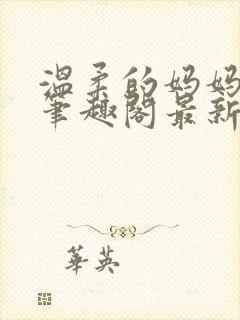 温柔的妈妈
笔趣阁最新
華英